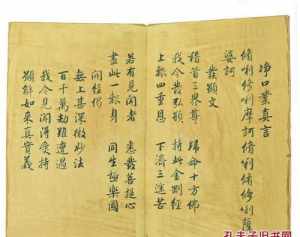 淨口業真言
脩利脩利摩訶脩利脩脩利薩
婆訶
發願文
稽首三界尊 歸命十方佛
我今發弘願 持此金剛經
上報四重恩 下濟三途苦
若有見聞者 悉發菩提心
盡此一報身 同生極樂國
開經偈
無上甚深微妙法
百千萬劫難遭遇
我今見聞得受持
願解如來真實義
孔夫子旧书网